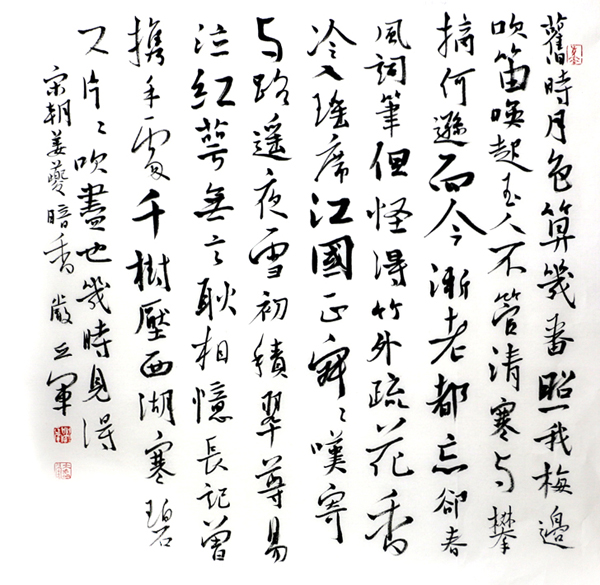 舊時月色算幾番照我梅邊
吹笛喚起玉人不管清寒与攀
摘何遜而今漸老都忘卻春
風詞筆但怪得竹外疏花香
冷入瑤席江國正寂〻嘆寄
与路遥夜雪初積翠尊易
泣紅萼無言耿相憶長記曾
携手處千樹壓西湖寒碧
又片〻吹盡也幾時見得
宋朝姜夔暗香 嚴 軍